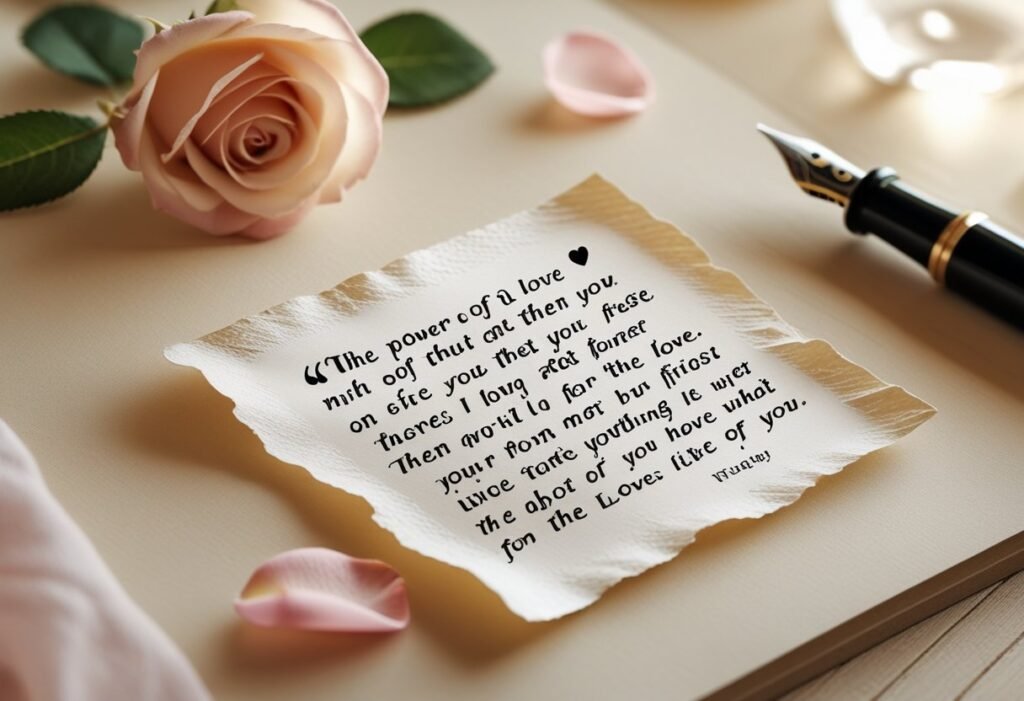 “The power of a love ♥
mih oof thut ant then you.
on sfe you thet you frese
Thores I long zest fonet
Then wortl lo for the love.
your from mot bur friost
Liöce tortc yovthing is wet
the abot of you have what
fon the Loves litve of you.